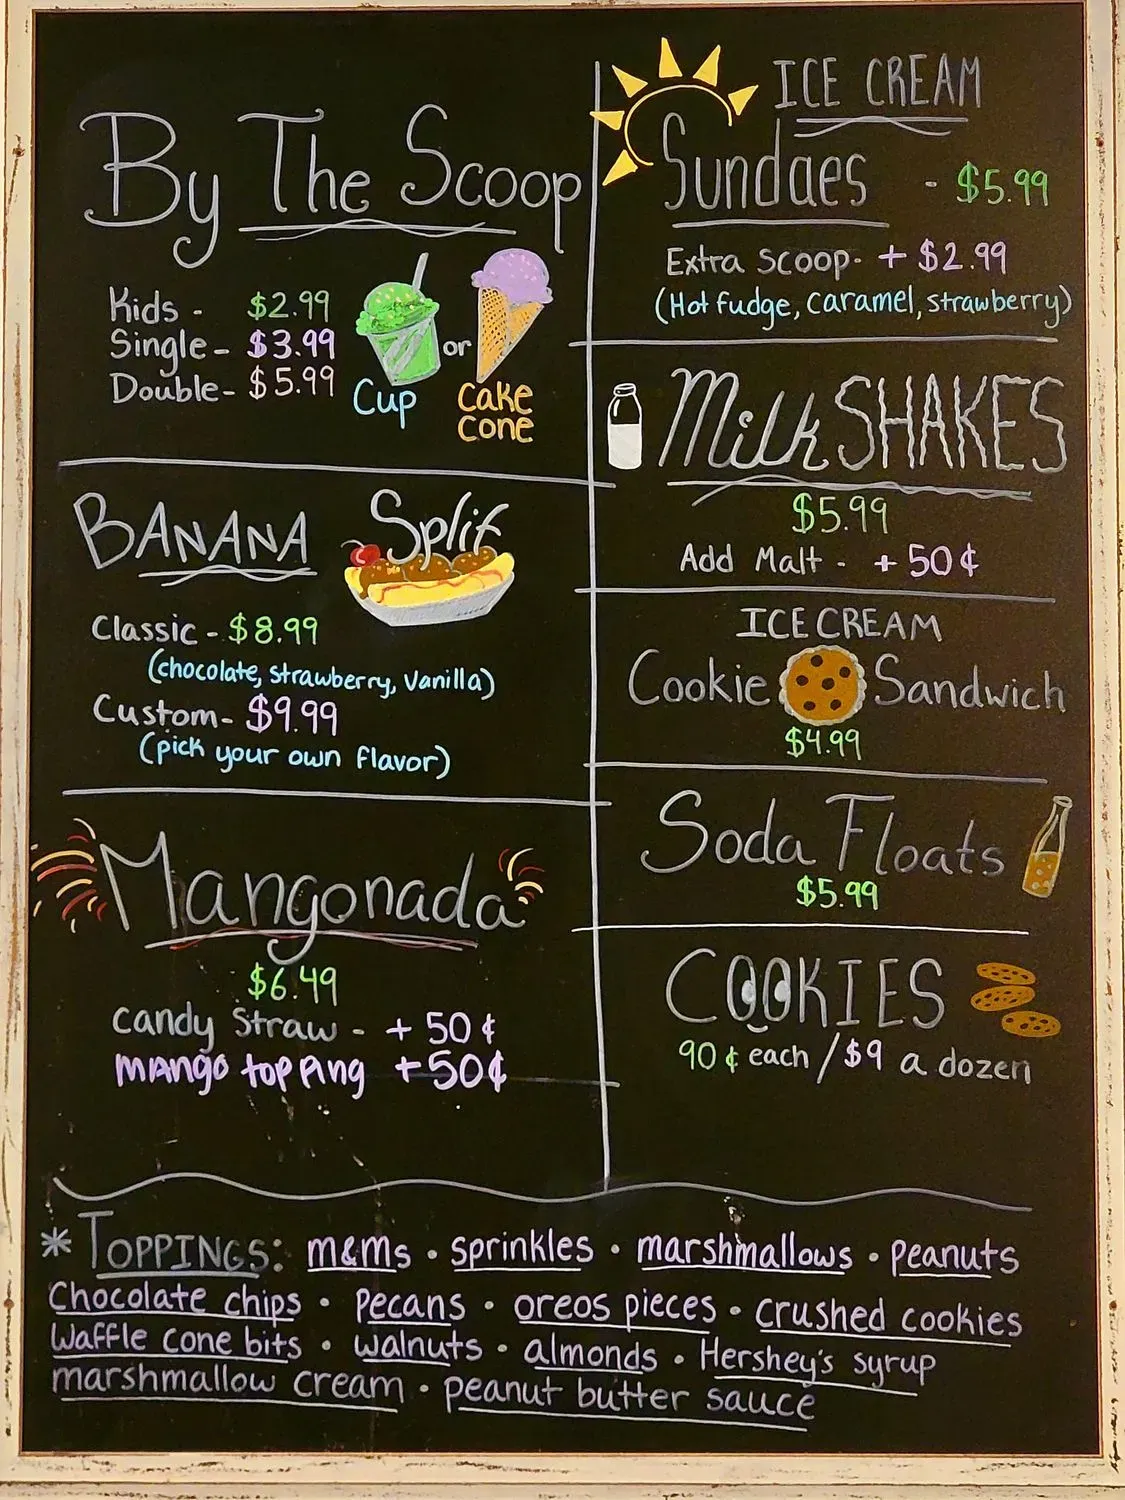 By The Scoop
Kids - $2.99
Single - $3.99
Double - $5.99
Cup
or
Cake
Cone
BANANA Split
Classic - $8.99
(chocolate, strawberry, vanilla)
Custom - $9.99
(pick your own flavor)
Mangonada
$6.49
Candy Straw - + 50¢
mango topping + 50¢
ICE CREAM
Sundaes - $5.99
Extra Scoop - + $2.99
(Hot fudge, caramel, strawberry)
Milk SHAKES
$5.99
Add Malt - + 50¢
ICE CREAM
Cookie Sandwich
$4.99
Soda Floats
$5.99
COOKIES
90¢ each / $9 a dozen
* TOPPINGS: m&ms · sprinkles · marshmallows · peanuts
Chocolate chips · pecans · oreos pieces · crushed cookies
Waffle cone bits · walnuts · almonds · Hershey's syrup
marshmallow cream · peanut butter sauce